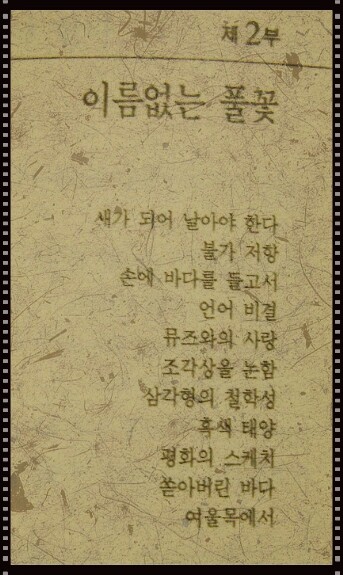 제2부
이름없는 풀꽃
새가 되어 날아야 한다
불가 저항
손에 바다를 들고서
언어 비결
뮤즈와의 사랑
조각상을 눈함
삼각형의 철학성
흑색 태양
평화의 스케치
쏟아버린 바다
여울목에서